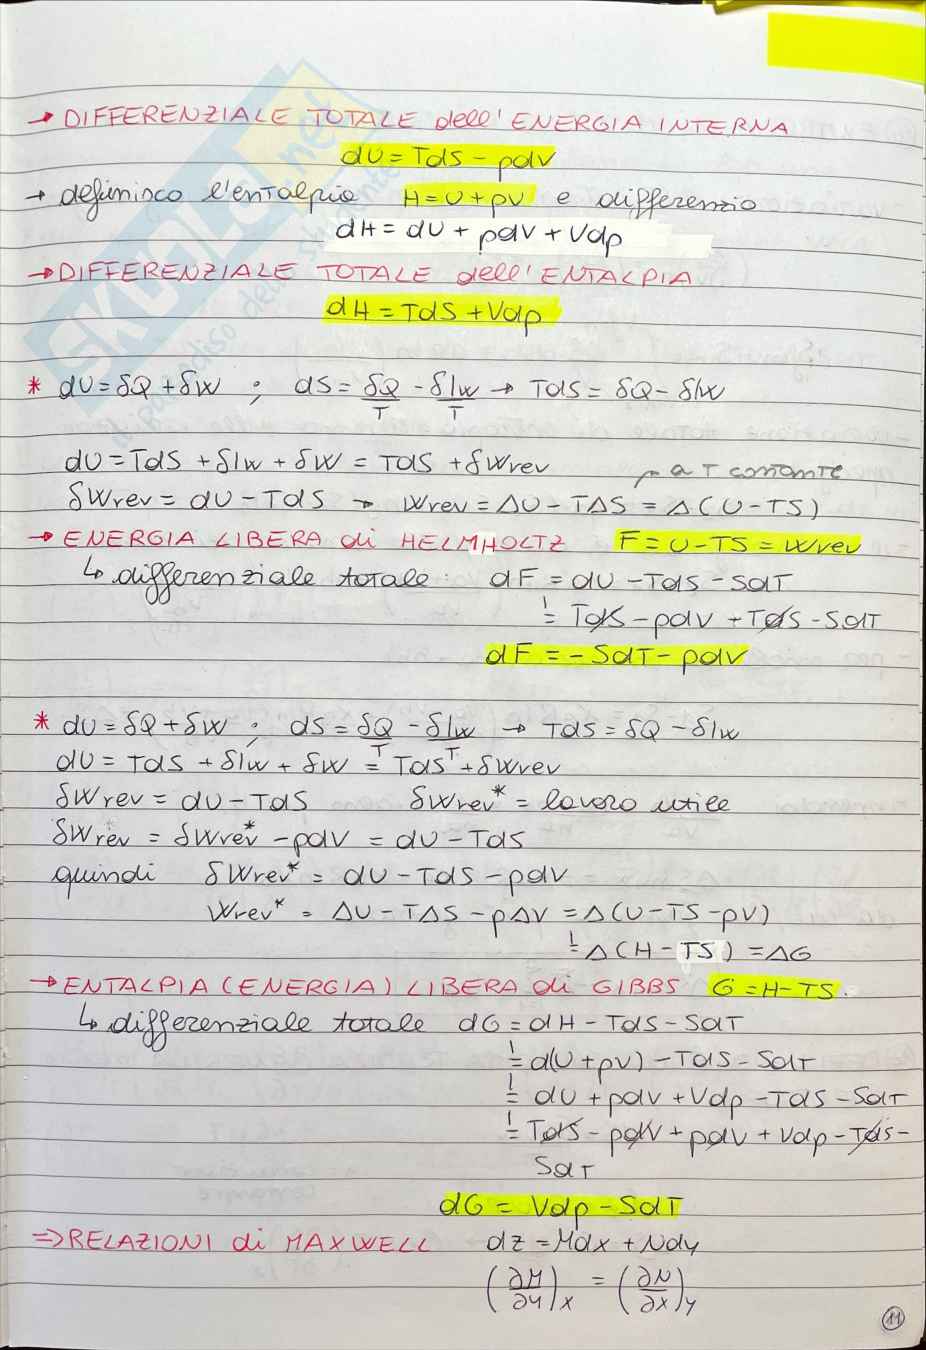 → DIFFERENZIALE TOTALE dell' ENERGIA INTERNA
dU = TdS - pdV
→ definisco l'entalpia H = U + pV e differenzio
dH = dU + pdV + Vdp
→ DIFFERENZIALE TOTALE dell' ENTALPIA
dH = TdS + Vdp
* dU = δQ + δW ; dS = δQ/T - δlw/T → TdS = δQ - δlw
dU = TdS + δlw + δW = TdS + δWrev
a T costante
δWrev = dU - TdS → Wrev = ΔU - TΔS = Δ(U - TS)
→ ENERGIA LIBERA di HELMHOLTZ F = U - TS = Wrev
↳ differenziale totale: dF = dU - TdS - SdT
= TdS - pdV + TdS - SdT
dF = - SdT - pdV
* dU = δQ + δW ; dS = δQ/T - δlw/T → TdS = δQ - δlw
dU = TdS + δlw + δW = TdS + δWrev
δWrev = dU - TdS δWrev* = lavoro utile
δWrev = δWrev* - pdV = dU - TdS
quindi δWrev* = dU - TdS - pdV
Wrev* = ΔU - TΔS - pΔV = Δ(U - TS - pV)
= Δ(H - TS) = ΔG
→ ENTALPIA (ENERGIA) LIBERA di GIBBS G = H - TS.
↳ differenziale totale dG = dH - TdS - SdT
= d(U + pV) - TdS - SdT
= dU + pdV + Vdp - TdS - SdT
= TdS - pdV + pdV + Vdp - TdS -
SdT
dG = Vdp - SdT
⇒ RELAZIONI di MAXWELL dz = Mdx + Ndy
(∂M/∂y)x = (∂N/∂x)y
11
SKUOLA.net
il paradiso dello studente